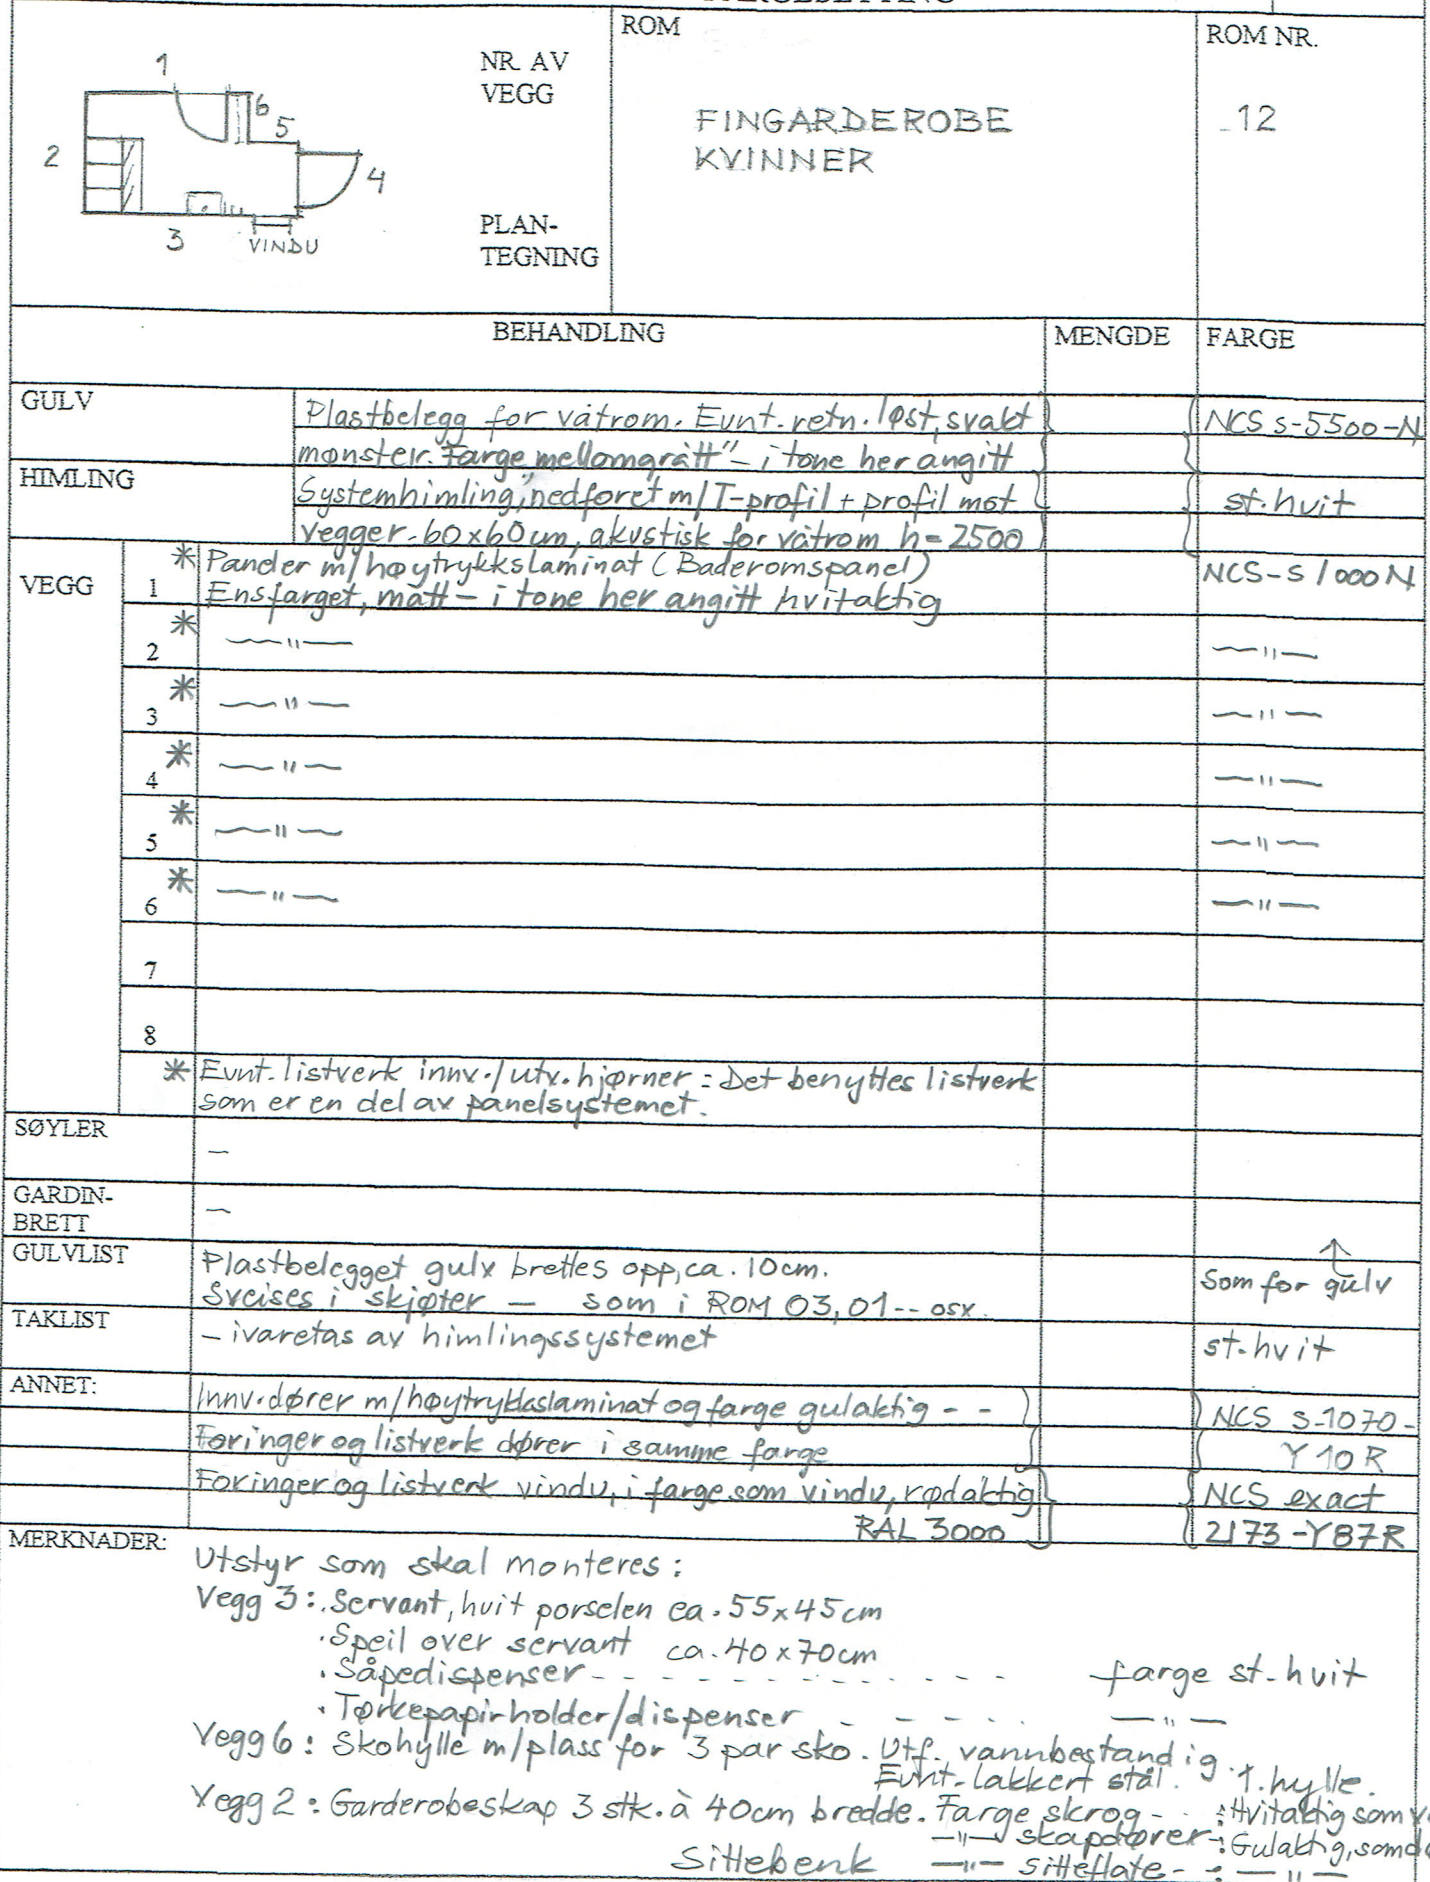 ROM
ROM NR.
1
NR. AV
VEGG
6
5
FINGARDEROBE
12
KVINNER
2
4
3
VINDU
PLAN-
TEGNING
BEHANDLING
MENGDE
FARGE
GULV
Plastbelegg for våtrom. Evnt. retn. løst, svakt
NCS S-5500-N
mønster. Farge „mellomgrått" - i tone her angitt
HIMLING
Systemhimling, nedforet m/T-profil + profil mot
st. hvit
vegger. 60x60cm, akustisk for våtrom h=2500
VEGG
1
* Pander m/høytrykkslaminat (Baderomspanel)
NCS-S1000N
Ensfarget, matt - i tone her angitt hvitaktig
* 2 —"— —"—
* 3 —"— —"—
* 4 —"— —"—
* 5 —"— —"—
* 6 —"— —"—
7
8
* Evnt. listverk innv./utv. hjørner: Det benyttes listverk
som er en del av panelsystemet.
SØYLER
—
GARDIN-
BRETT
—
GULVLIST
Plastbelegget gulv brettes opp, ca. 10cm.
Som for gulv
Sveises i skjøter — som i ROM 03, 01 -- osv.
TAKLIST
- ivaretas av himlingssystemet
st. hvit
ANNET:
Innv. dører m/høytrykkslaminat og farge gulaktig - -
NCS S-1070-
Foringer og listverk dører i samme farge
Y10R
Foringer og listverk vindu, i farge som vindu, rødaktig
NCS exact
RAL 3000
2173-Y87R
MERKNADER:
Utstyr som skal monteres:
Vegg 3: . Servant, hvit porselen ca. 55x45cm
. Speil over servant ca. 40x70cm
. Såpedispenser - - - - - - - - - - - - farge st. hvit
. Tørkepapirholder/dispenser - - - - - —"—
Vegg 6: Skohylle m/plass for 3 par sko. Utf. vannbestandig
Evnt. lakkert stål. 1. hylle.
Vegg 2: Garderobeskap 3 stk. à 40cm bredde. Farge skrog - - : Hvitaktig som
—"— skapdører - : Gulaktig, som
Sittebenk —"— sitteflate - : —"—